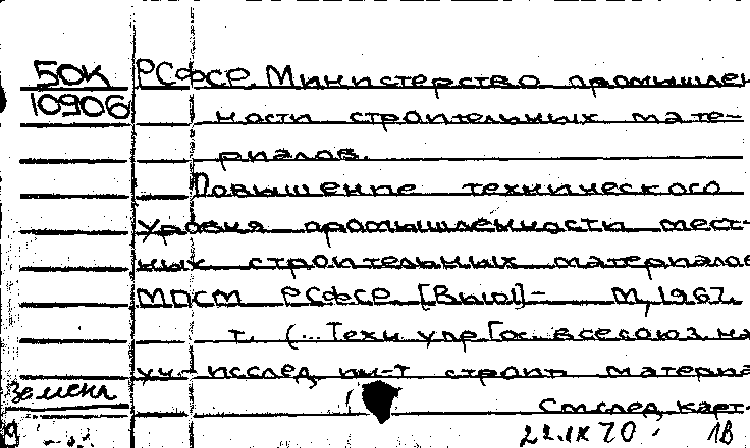 50К РСФСР Министерство промышлен
10906 ности строительных мате-
риалов.
Повышение технического
уровня промышленности мест-
ных строительных материалов
МПСМ РСФСР [Вып1]- М, 1967.
т. (...Техн. упр Гос. всесоюз. на
уч-исслед. ин-т строит. материа
Земска
См след. карт.
22.IX 70.